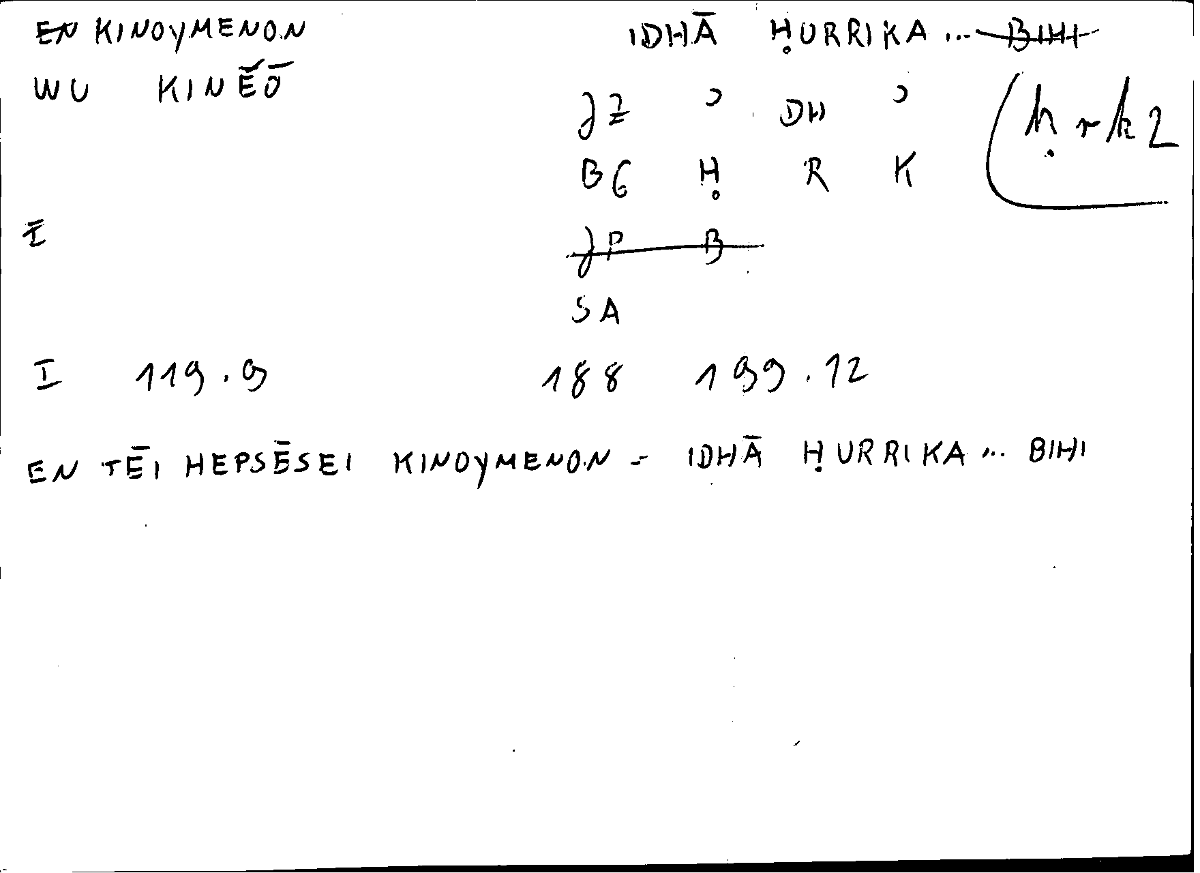 EN KINOYMENON IDHĀ ḤURRIKA ... BIHI
WU KINĔŌ
JZ ʾ DH ʾ
BG Ḥ R K
(ḥrk2
Ī
JP B
SA
I 119.9 188 199.12
EN TĒI HEPSĒSEI KINOYMENON = IDHĀ ḤURRIKA ... BIHI